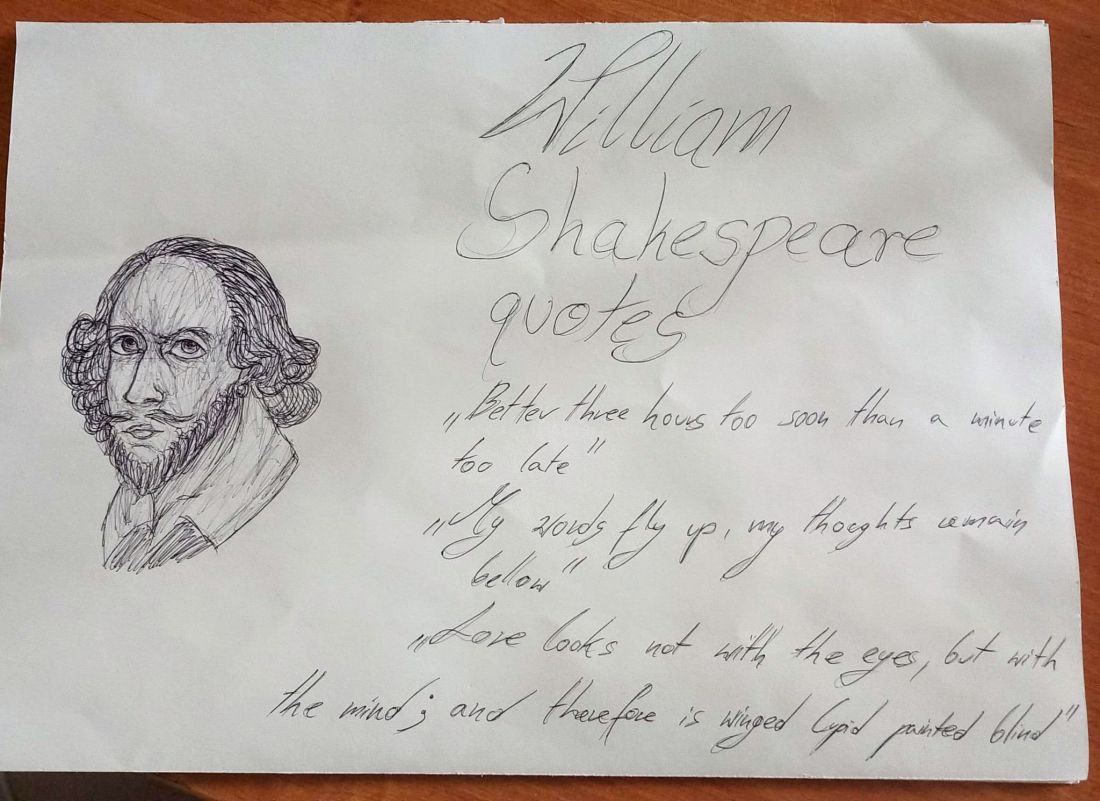 William
Shakespeare
quotes
„Better three hours too soon than a minute
too late"
„My words fly up, my thoughts remain
bellow"
„Love looks not with the eyes, but with
the mind; and therefore is winged Cupid painted blind"